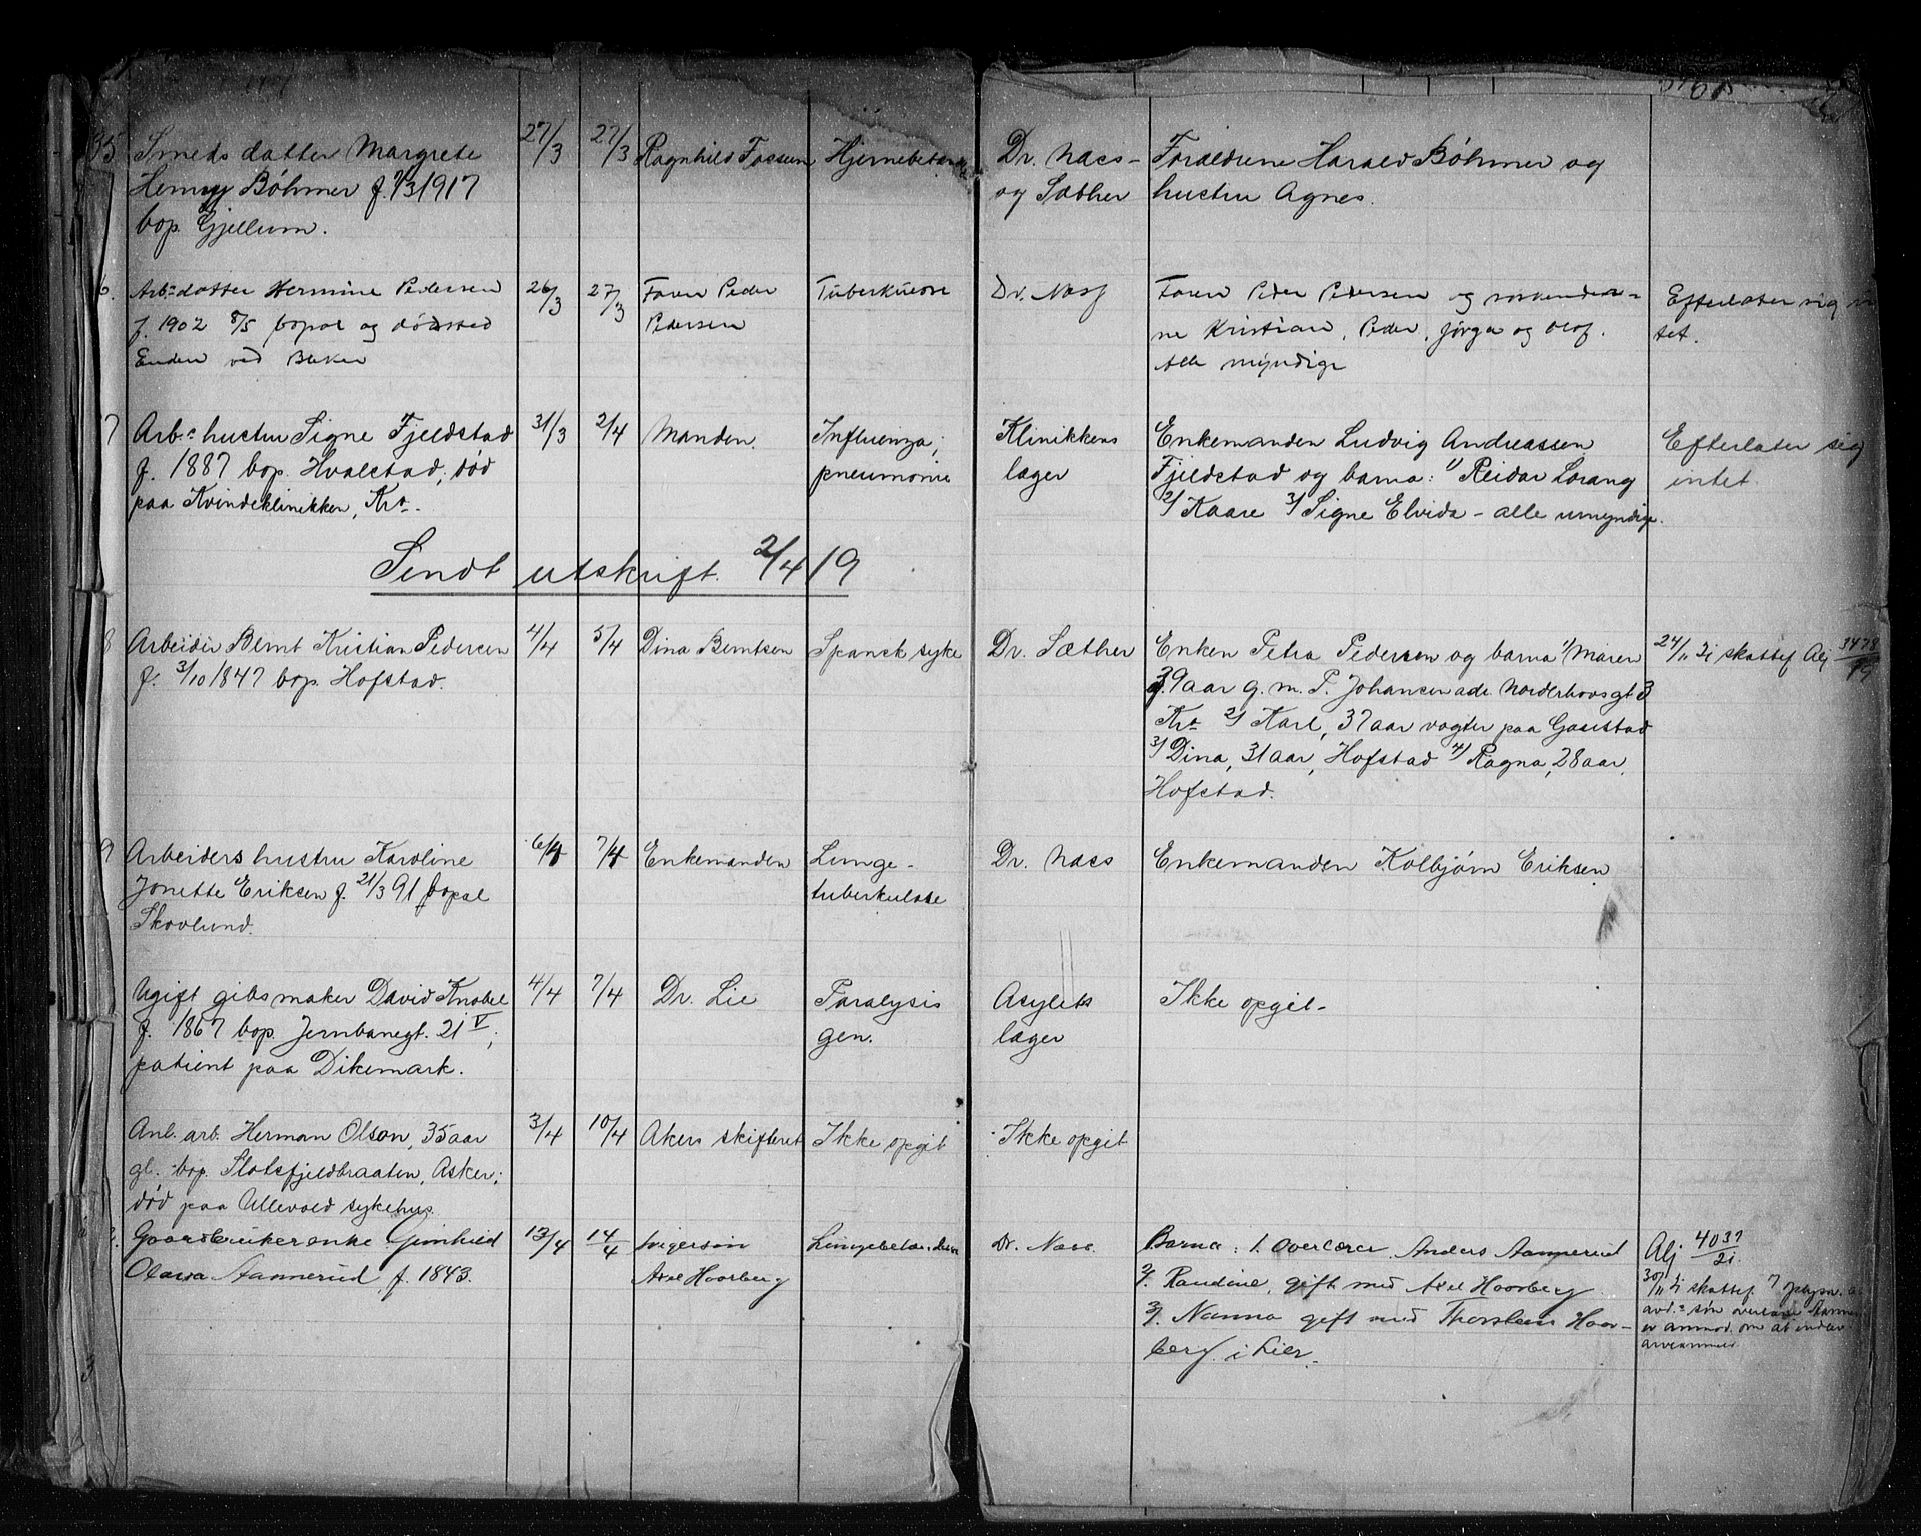 35 Smeds datter Margrete 27/3 27/3 Ragnhild Fossum Hjernebetænd Dr. Næs- Forældrene Harald Bøhmer og
Henny Bøhmer f. 7/3 1917 og Sæther hustru Agnes.
bop. Gjellum.
6. Arb. datter Hermine Pedersen 26/3 27/3 Faren Peder Tuberkulose Dr. Næss Faren Peder Pedersen og søskende- Efterlater sig in
f. 1902 8/5 bopæl og dødssted Pedersen ne Kristian, Peder, Jørga og Olof. tet.
Enden ved Bleker Alle myndige
7 Arb. hustru Signe Fjeldstad 31/3 2/4 Manden. Influenza; Klinikkens Enkemanden Ludvig Andreassen Efterlater sig
f. 1887 bop. Hvalstad; død pneumonie læger Fjeldstad og barna: 1/ Reidar Lorang intet.
paa Kvindeklinikken, Kra. 2/ Kaare 3/ Signe Elvida - alle umyndige.
Sendt utskrift 2/4 19
8 Arbeider Bernt Kristian Pedersen 4/4 5/4 Dina Berntsen Spansk syke Dr. Sæther Enken Petra Pedersen og barna 1/ Maren 24/11 Ti skattef Alj 3478/19
f. 3/10 1847 bop. Hofstad. 39 aar g. m. T. Johansen adr. Norderhovsgt 3
Kra 2/ Karl, 37 aar vagter paa Gaustad
3/ Dina, 31 aar, Hofstad 4/ Ragna, 28 aar,
Hofstad.
9 Arbeiders hustru Karoline 6/4 7/4 Enkemanden Lunge- Dr. Næs Enkemanden Kolbjørn Eriksen.
Jonette Eriksen f. 21/3 91 bopæl tuberkulose
Skovlund.
Ugift gibsmaker David Knobel 4/4 7/4 Dr. Lie Paralysis Asylets Ikke opgit-
f. 1867 bop. Jernbanegt. 21 V; gen. læger
patient paa Dikemark.
Anl. arb. Herman Olson, 35 aar 3/4 10/4 Akers skifteret Ikke opgit Ikke opgit
gl. bop. Slotsfjeldbraaten, Asker;
død paa Ullevold sykehus.
Gaardbrukerenke Gunhild 13/4 14/4 Svigersøn Dr. Næss. Barna: 1. Overlærer Anders Aannerud Alj 4037/21.
Olava Aannerud f. 1843. Axel Hoorberg 2/. Randine, gift med Axel Hoorberg 30/11 Ti skattef.
3/. Nanna gift med Thorsten Hoor- avd. søn overlærer
berg i Lier. er anmod. om at